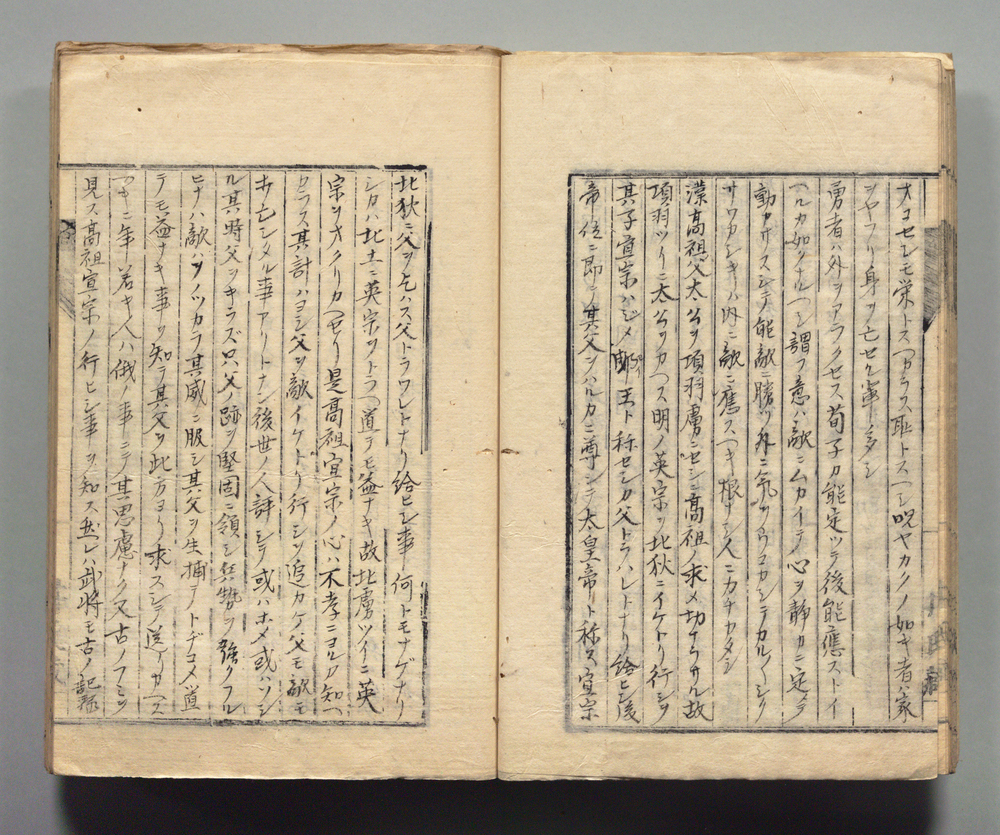 オコセシモ栄トスヘカラス耻トスヘシ况ヤカクノ如キ者ハ家
ヲヤフリ身ヲ亡セシ輩多シ
勇者ハ外ヲアラクセス荀子カ能定ツテ後能應ストイ
ヘルカ如クナルヘシ謂フ意ハ敵ニムカイテ心ヲ静カニ定メテ
動カサスシテ能敵ニ勝ツ外ニ氣ヲウコカシテカルノシク
サワカシキハ内ニ敵ニ應スヘキ根ナシ人ニカチカタシ
漢高祖父太公ヲ項羽虜ニセシニ高祖ノ求メ切ナラサル故
項羽ツイニ太公ヲカヘス明ノ英宗ヲ北狄ニイケトリ行シヲ
其子宣宗ハジメ郕王ト称セシカ父トラハレトナリ給ヒシ後
帝位ニ即テ其父ヲハルカニ尊シテ太皇帝ト称ス宣宗
北狄ニ父ヲ乞ハス父トラワレトナリ給ヒシ事何トモナゲナリ
シカハ北土ニ英宗ヲトラヘ道テモ益ナキ故北虜ツイニ英
宗ヲオクリカヘセリ是高祖宣宗ノ心ハ不孝ニヨルカ知ヘ
カラス其計ハヨシ父ヲ敵イケトリ行シヲ追カケ父モ敵モ
ホシ亡シタル事アリトナン後世ノ人評シテ或ハホメ或ハソシ
ル其時父ヲキラズ只父ノ跡ヲ堅固ニ領シ兵勢ヲ強クフル
ヒナハ敵ハヲノツカラ其威ニ服シ其父ヲ生捕テトヂコメ道
テモ益ナキ事ヲ知テ其父ヲ此方ヨリ求スシテ送リカヘス
ヘキニ年若キ人ハ俄ノ事ニテ其思慮ナク又古ノフミヲ
見ス高祖宣宗ノ行ヒシ事ヲ知ス然レハ武将モ古ノ記録